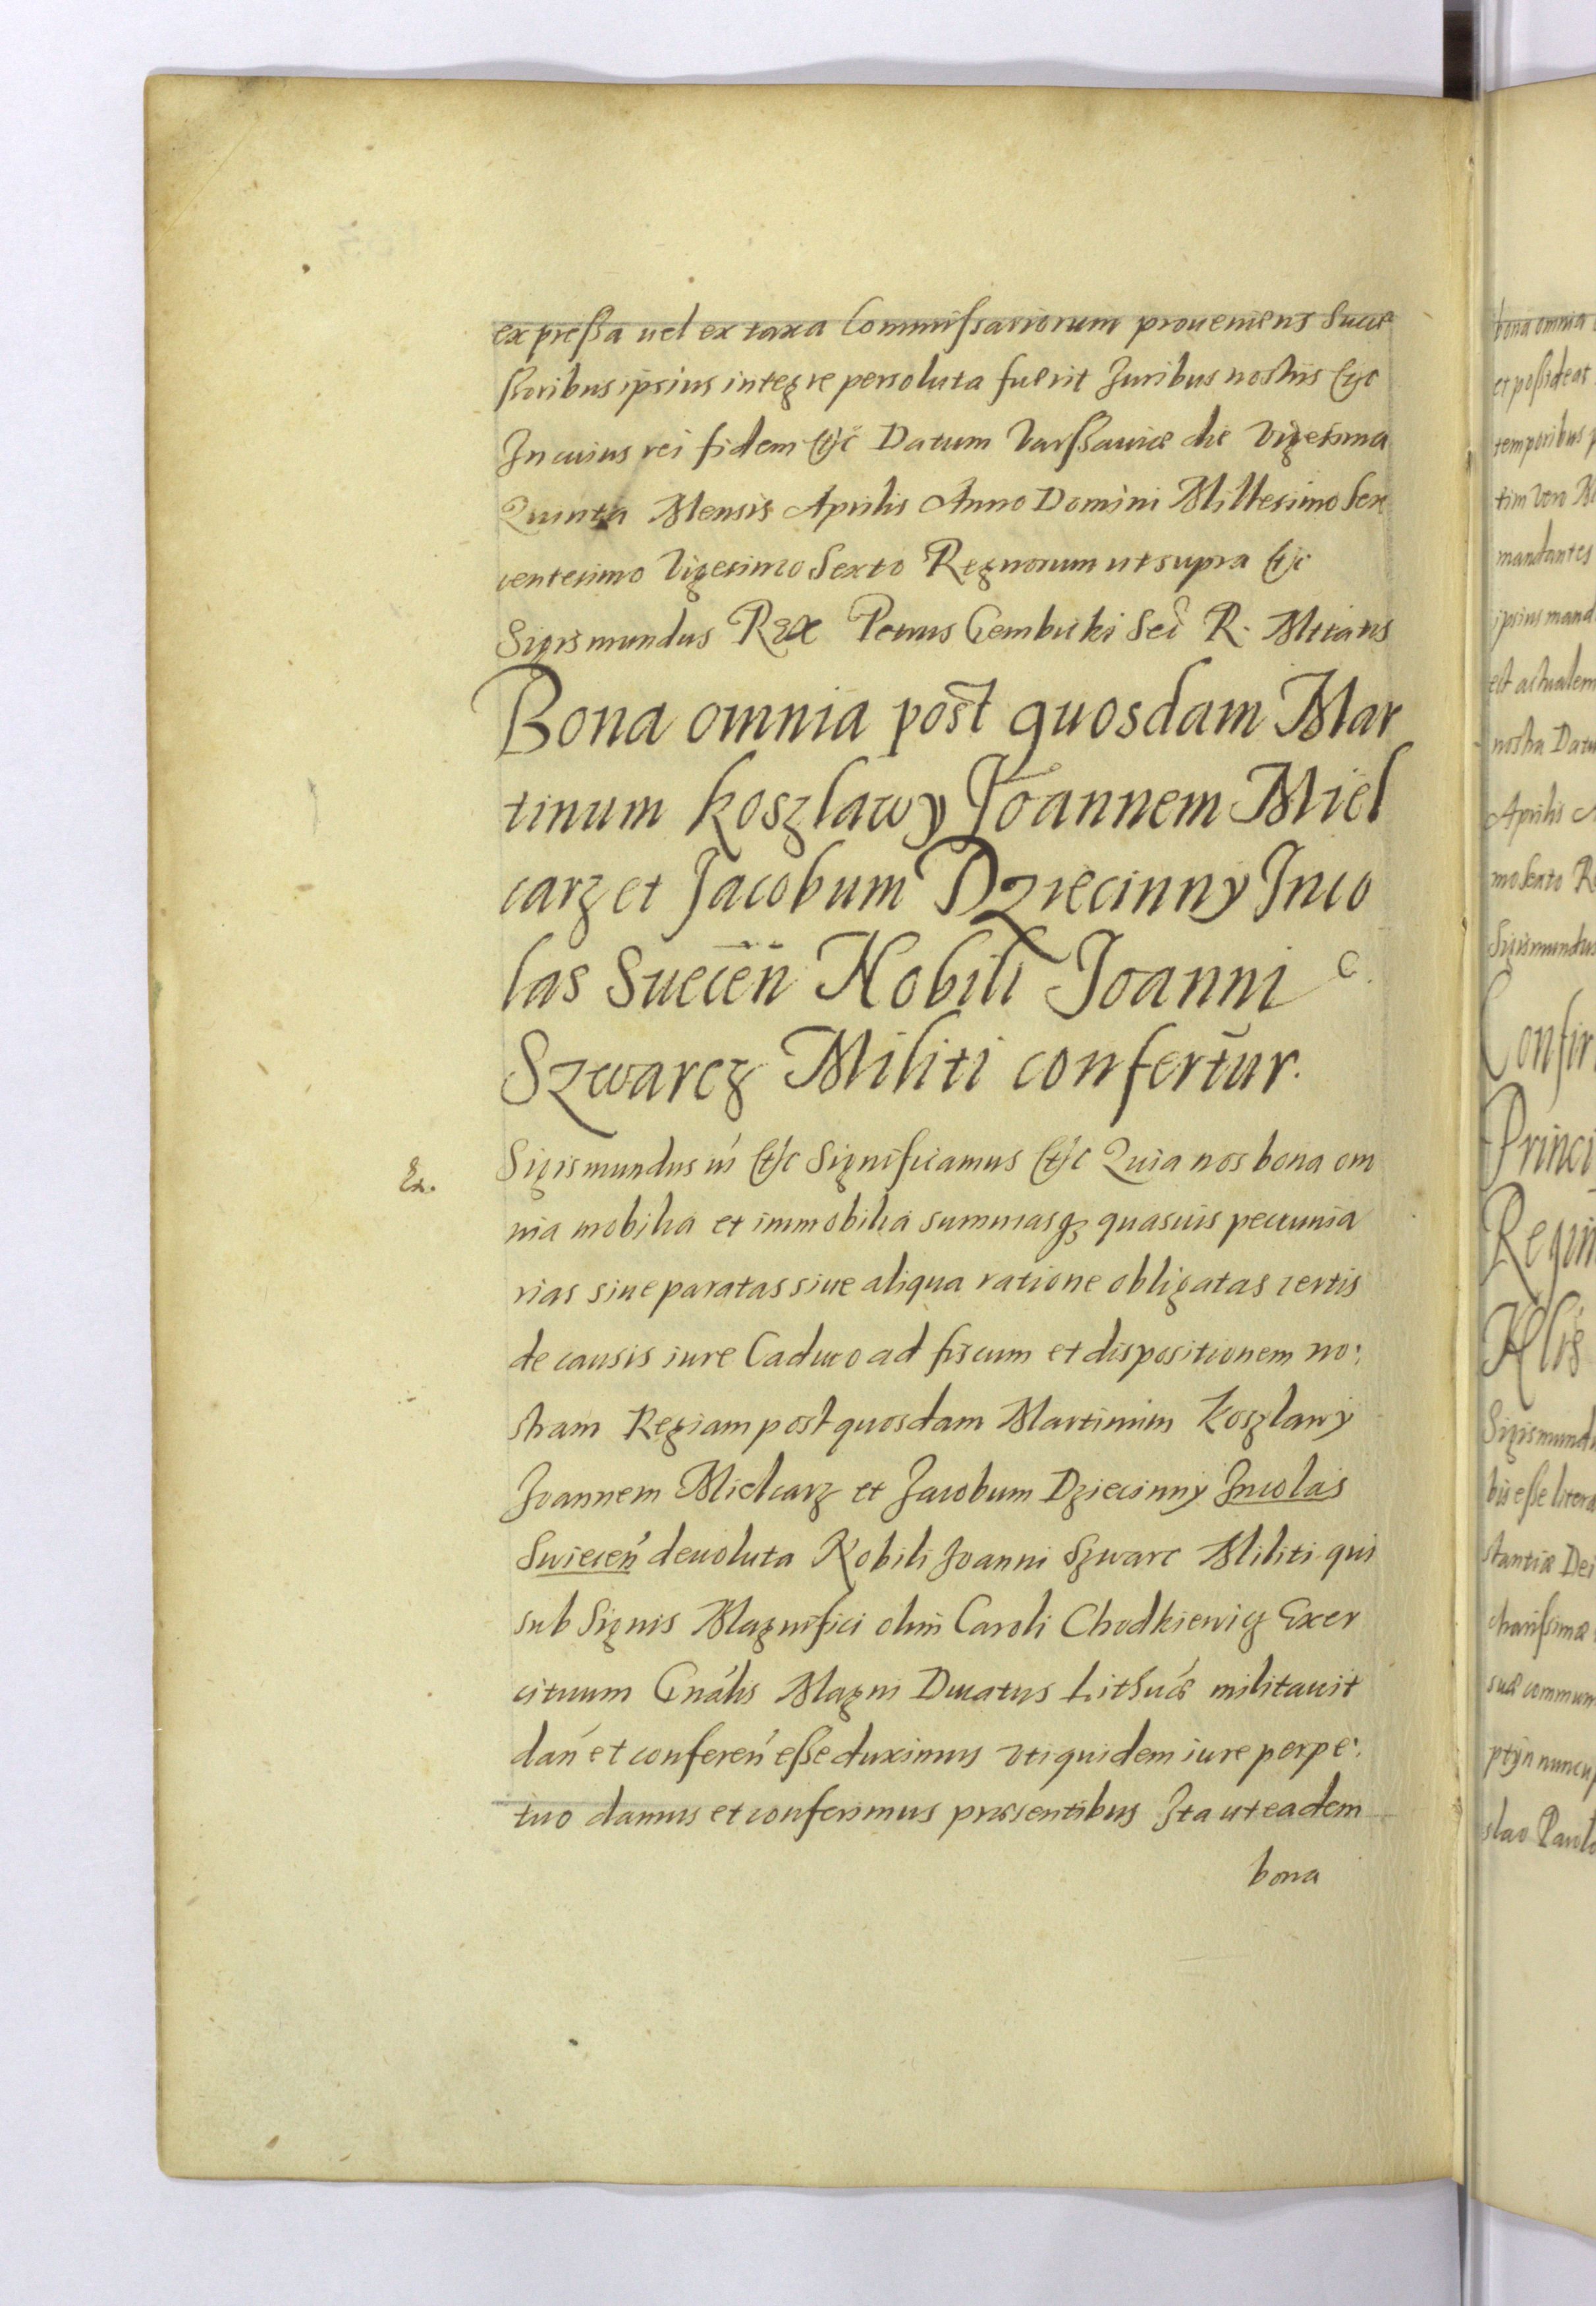 expressa uel ex taxa Commissariorum proueniens Succe
ssoribus ipsius integre persoluta fuerit Juribus nostris etc
In cuius rei fidem etc Datum Varssauiæ die Vigesima
Quinta Mensis Aprilis Anno Domini Millesimo Sex
centesimo Vigesimo Sexto Regnorum ut supra etc
Sigismundus Rex Petrus Gembicki Sec̃ R. Mttatis
Bona omnia post quosdam Mar
tinum Koszlawy Joannem Miel
carz et Jacobum Dziecinny Inco
las Suecen̄ Nobili Joanni C.
Szwarcz Militi confertur.
Ex. Sigismundus iii etc Significamus etc Quia nos bona om
nia mobilia et immobilia summasq3 quasuis pecunia
rias siue paratas siue aliqua ratione obligatas certis
de causis iure Caduco ad fiscum et dispositionem no:
stram Regiam post quosdam Martinum Koszlawy
Joannem Mielcarz et Jacobum Dziecinny Incolas
Swiecen̄ deuoluta Nobili Joanni Szwarc Militi qui
sub Signis Magnifici olim Caroli Chodkiewicz Exer
cituum Gnãlis Magni Ducatus Lithuæ militauit
dan̄ et conferen̄ esse duximus uti quidem iure perpe:
tuo damus et conferimus præsentibus Ita ut eadem
bona
bona omnia
et possideat
temporibus
mandantes
ipsius mand
est actualem
nostra Datu
Aprilis
Sigismundus
Confir
Princi
Regin
Sigismundu
bis esse litera
stantiæ Dei
charissimæ
suæ commun
slao